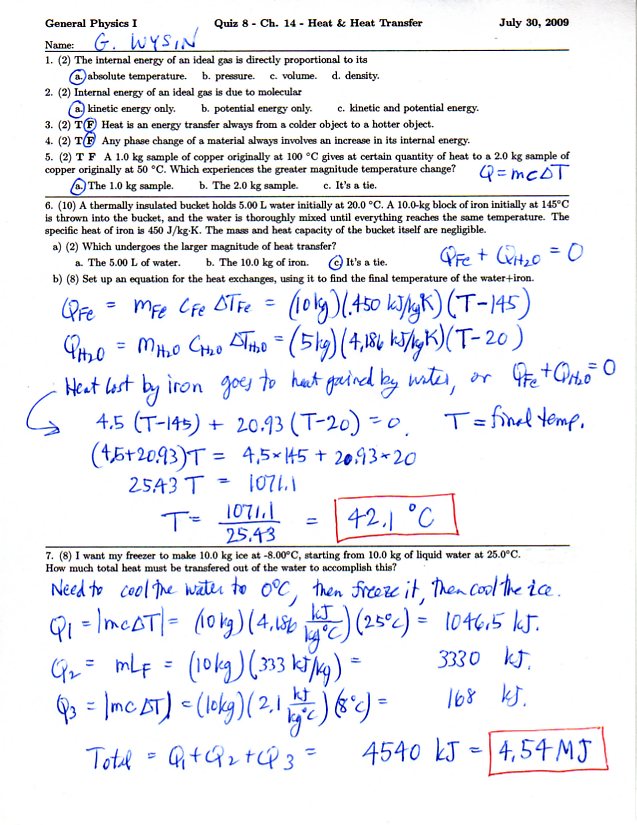 General Physics I Quiz 8 - Ch. 14 - Heat & Heat Transfer July 30, 2009
Name: G. WYSIN
1. (2) The internal energy of an ideal gas is directly proportional to its
a. absolute temperature. b. pressure. c. volume. d. density.
2. (2) Internal energy of an ideal gas is due to molecular
a. kinetic energy only. b. potential energy only. c. kinetic and potential energy.
3. (2) T F Heat is an energy transfer always from a colder object to a hotter object.
4. (2) T F Any phase change of a material always involves an increase in its internal energy.
5. (2) T F A 1.0 kg sample of copper originally at 100 °C gives at certain quantity of heat to a 2.0 kg sample of
copper originally at 50 °C. Which experiences the greater magnitude temperature change? Q = mcΔT
a. The 1.0 kg sample. b. The 2.0 kg sample. c. It's a tie.
6. (10) A thermally insulated bucket holds 5.00 L water initially at 20.0 °C. A 10.0-kg block of iron initially at 145°C
is thrown into the bucket, and the water is thoroughly mixed until everything reaches the same temperature. The
specific heat of iron is 450 J/kg·K. The mass and heat capacity of the bucket itself are negligible.
a) (2) Which undergoes the larger magnitude of heat transfer?
a. The 5.00 L of water. b. The 10.0 kg of iron. c. It's a tie. QFe + QH2O = 0
b) (8) Set up an equation for the heat exchanges, using it to find the final temperature of the water+iron.
QFe = mFe CFe ΔTFe = (10kg)(.450 kJ/kgK)(T-145)
QH2O = mH2O CH2O ΔTH2O = (5kg)(4.186 kJ/kgK)(T-20)
Heat lost by iron goes to heat gained by water, or QFe + QH2O = 0
4.5 (T-145) + 20.93 (T-20) = 0. T = final temp.
(4.5+20.93)T = 4.5×145 + 20.93×20
25.43 T = 1071.1
T = 1071.1 / 25.43 = 42.1 °C
7. (8) I want my freezer to make 10.0 kg ice at -8.00°C, starting from 10.0 kg of liquid water at 25.0°C.
How much total heat must be transfered out of the water to accomplish this?
Need to cool the water to 0°C, then freeze it, then cool the ice.
Q1 = |mcΔT| = (10kg)(4.186 kJ/kg°C)(25°C) = 1046.5 kJ.
Q2 = mLF = (10kg)(333 kJ/kg) = 3330 kJ.
Q3 = |mcΔT| = (10kg)(2.1 kJ/kg°C)(8°C) = 168 kJ.
Total = Q1 + Q2 + Q3 = 4540 kJ = 4.54 MJ